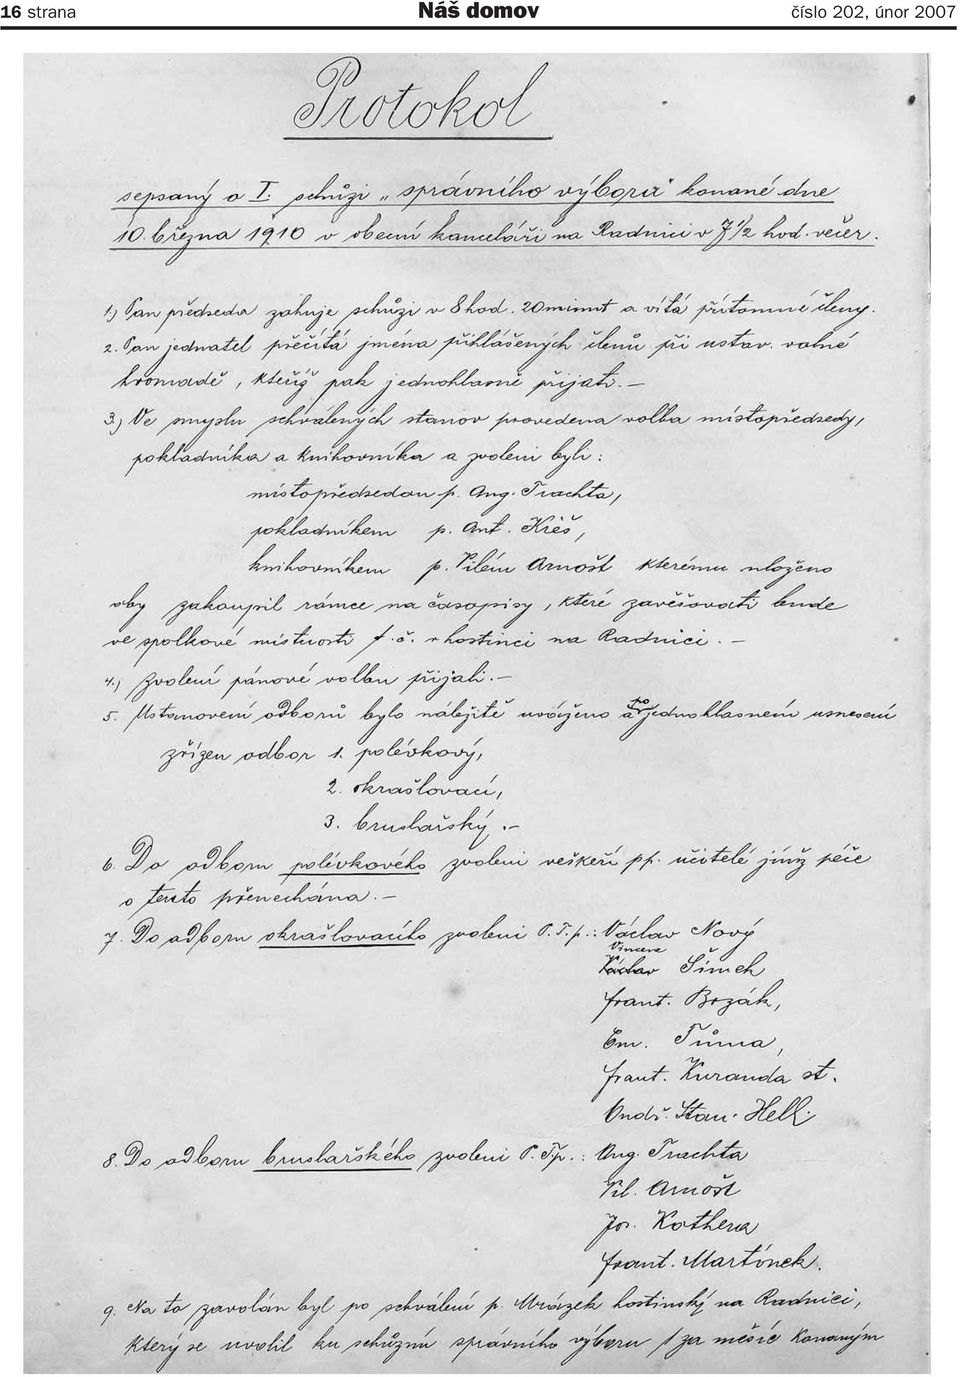 16 strana Náš domov číslo 202, únor 2007
Protokol
sepsaný o I. schůzi „správního výboru" konané dne
10. března 1910 v obecní kanceláři na Radnici v 7 1/2 hod. večer.
1.) Pan předseda zahuje schůzi v 8 hod. 20 minut a vítá přítomné členy.
2. Pan jednatel přečítá jména přihlášených členů při ustav. valné
hromadě, kteříž pak jednohlasně přijati. —
3.) Ve smyslu schválených stanov provedena volba místopředsedy,
pokladníka a knihovníka a zvoleni byli:
místopředsedou p. Aug. Trachta,
pokladníkem p. Ant. Křéš,
knihovníkem p. Vilém Arnošt kterému uloženo
aby zakoupil rámce na časopisy, které zavěšovati bude
ve spolkové místnosti t. č. v hostinci na Radnici. —
4.) Zvolení pánové volbu přijali. —
5. Ustanovení odborů bylo náležitě uváženo a po jednohlasném usnesení
zřízen odbor 1. polévkový,
2. okrašlovací,
3. bruslařský. —
6. Do odboru polévkového zvoleni veškeří pp. učitelé jimž péče
o tento přenechána. —
7. Do odboru okrašlovacího zvoleni P. T. p.: Václav Nový
Vincenc
Václav Šimek
Frant. Brzák,
Em. Tůma,
Frant. Kuranda st.
Ondř. Stan. Hell.
8. Do odboru bruslařského zvoleni P. T. p.: Aug. Trachta
Vil. Arnošt
Jos. Kothera
Frant. Martínek.
9. Na to zavolán byl po schválení p. Mrázek hostinský na Radnici,
který se uvolil ku schůzím správního výboru 1 za měsíc konaným